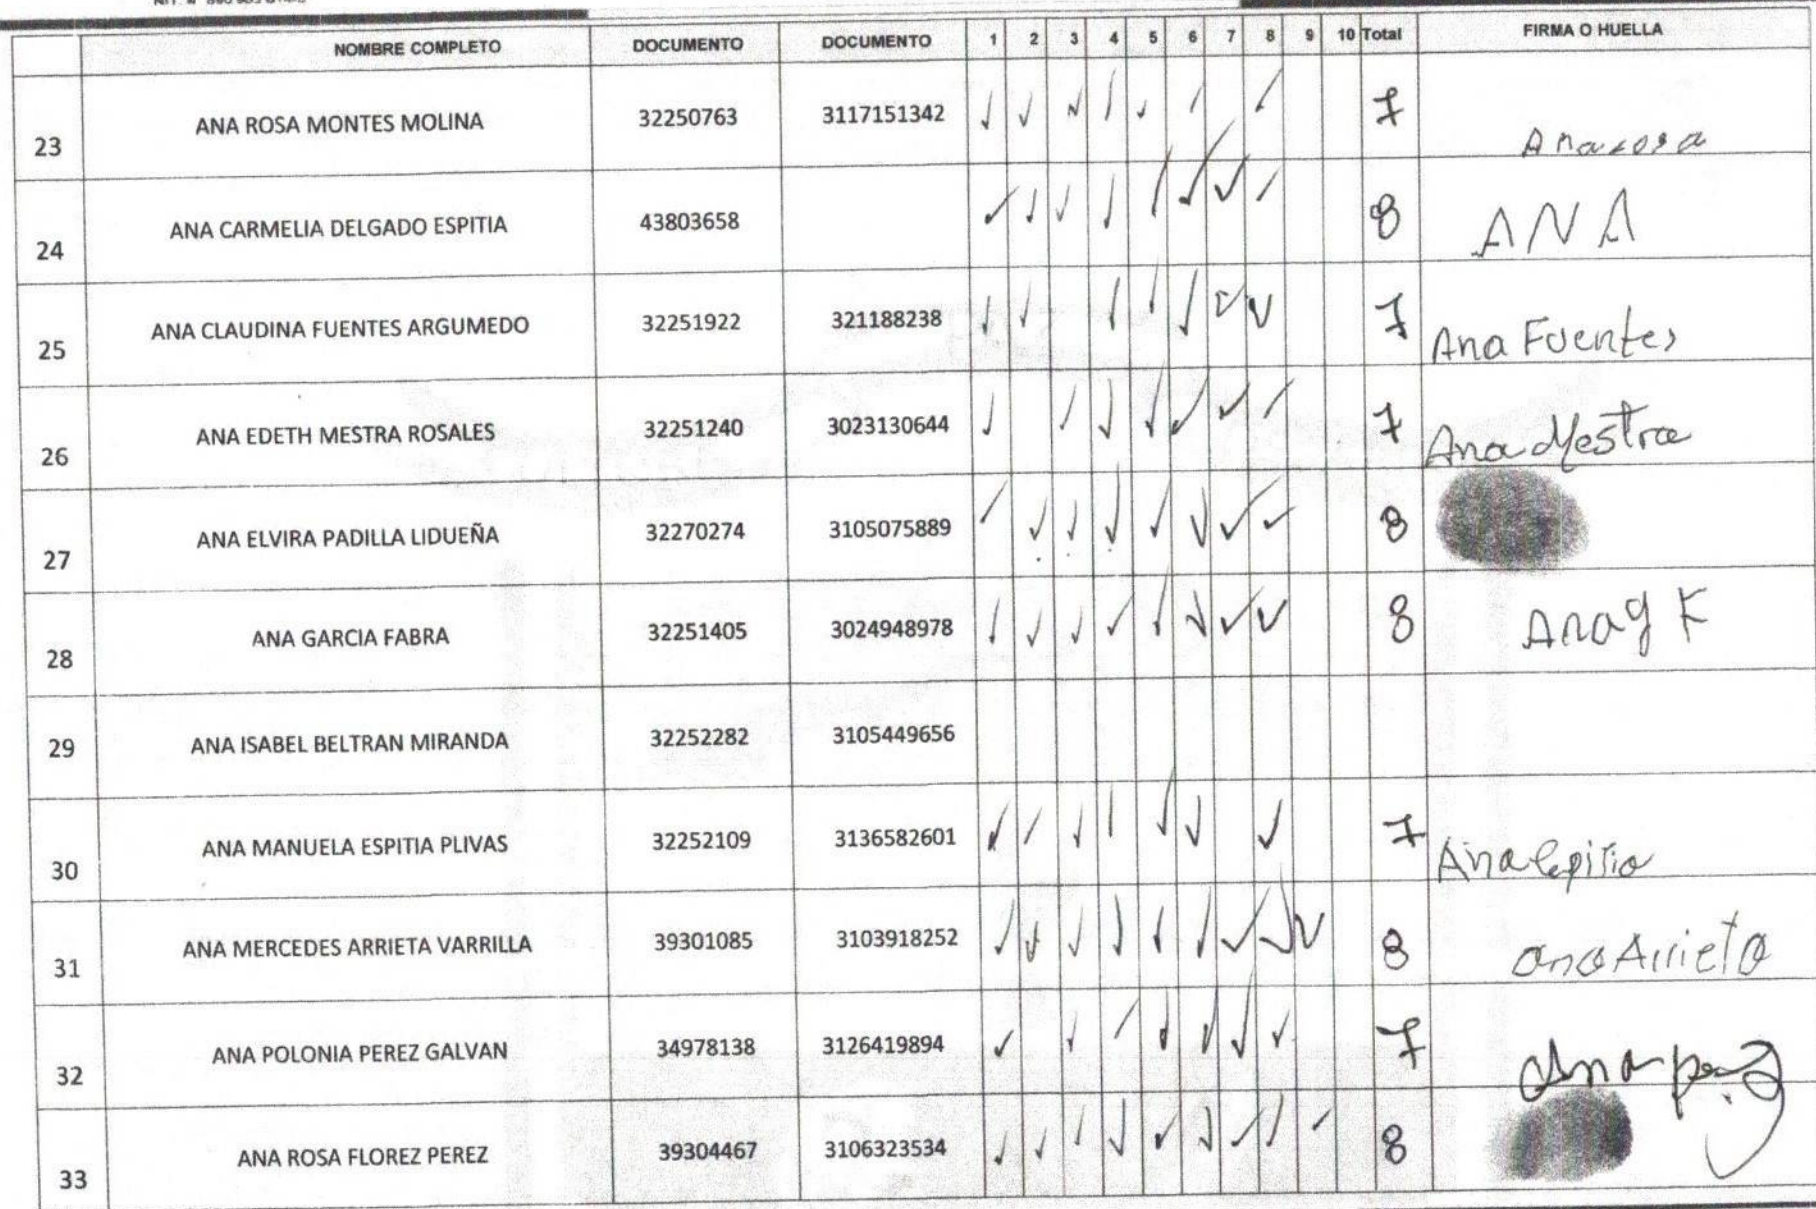 NOMBRE COMPLETO DOCUMENTO DOCUMENTO 1 2 3 4 5 6 7 8 9 10 Total FIRMA O HUELLA
23 ANA ROSA MONTES MOLINA 32250763 3117151342 ✓ ✓ ✓ ✓ ✓ ✓ ✓ 7 Ana rosa
24 ANA CARMELIA DELGADO ESPITIA 43803658 ✓ ✓ ✓ ✓ ✓ ✓ ✓ ✓ 8 ANA
25 ANA CLAUDINA FUENTES ARGUMEDO 32251922 321188238 ✓ ✓ ✓ ✓ ✓ ✓ ✓ 7 Ana Fuentes
26 ANA EDETH MESTRA ROSALES 32251240 3023130644 ✓ ✓ ✓ ✓ ✓ ✓ ✓ 7 Ana Mestra
27 ANA ELVIRA PADILLA LIDUEÑA 32270274 3105075889 ✓ ✓ ✓ ✓ ✓ ✓ ✓ ✓ 8
28 ANA GARCIA FABRA 32251405 3024948978 ✓ ✓ ✓ ✓ ✓ ✓ ✓ ✓ 8 Ana g F
29 ANA ISABEL BELTRAN MIRANDA 32252282 3105449656
30 ANA MANUELA ESPITIA PLIVAS 32252109 3136582601 ✓ ✓ ✓ ✓ ✓ ✓ ✓ 7 Ana
31 ANA MERCEDES ARRIETA VARRILLA 39301085 3103918252 ✓ ✓ ✓ ✓ ✓ ✓ ✓ ✓ ✓ 8 ana Arrieta
32 ANA POLONIA PEREZ GALVAN 34978138 3126419894 ✓ ✓ ✓ ✓ ✓ ✓ ✓ 7 Ana perez
33 ANA ROSA FLOREZ PEREZ 39304467 3106323534 ✓ ✓ ✓ ✓ ✓ ✓ ✓ ✓ ✓ 8